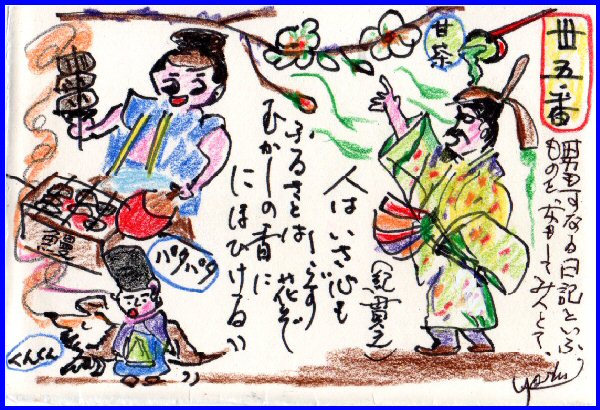 丗五番
男もすなる日記といふ、
ものを、女もしてみんとて、
甘茶
人はいさ心も
しらず
ふるさとは 花ぞ
むかしの香に
にほひける
(紀貫之)
鰻
パタパタ
くんくん